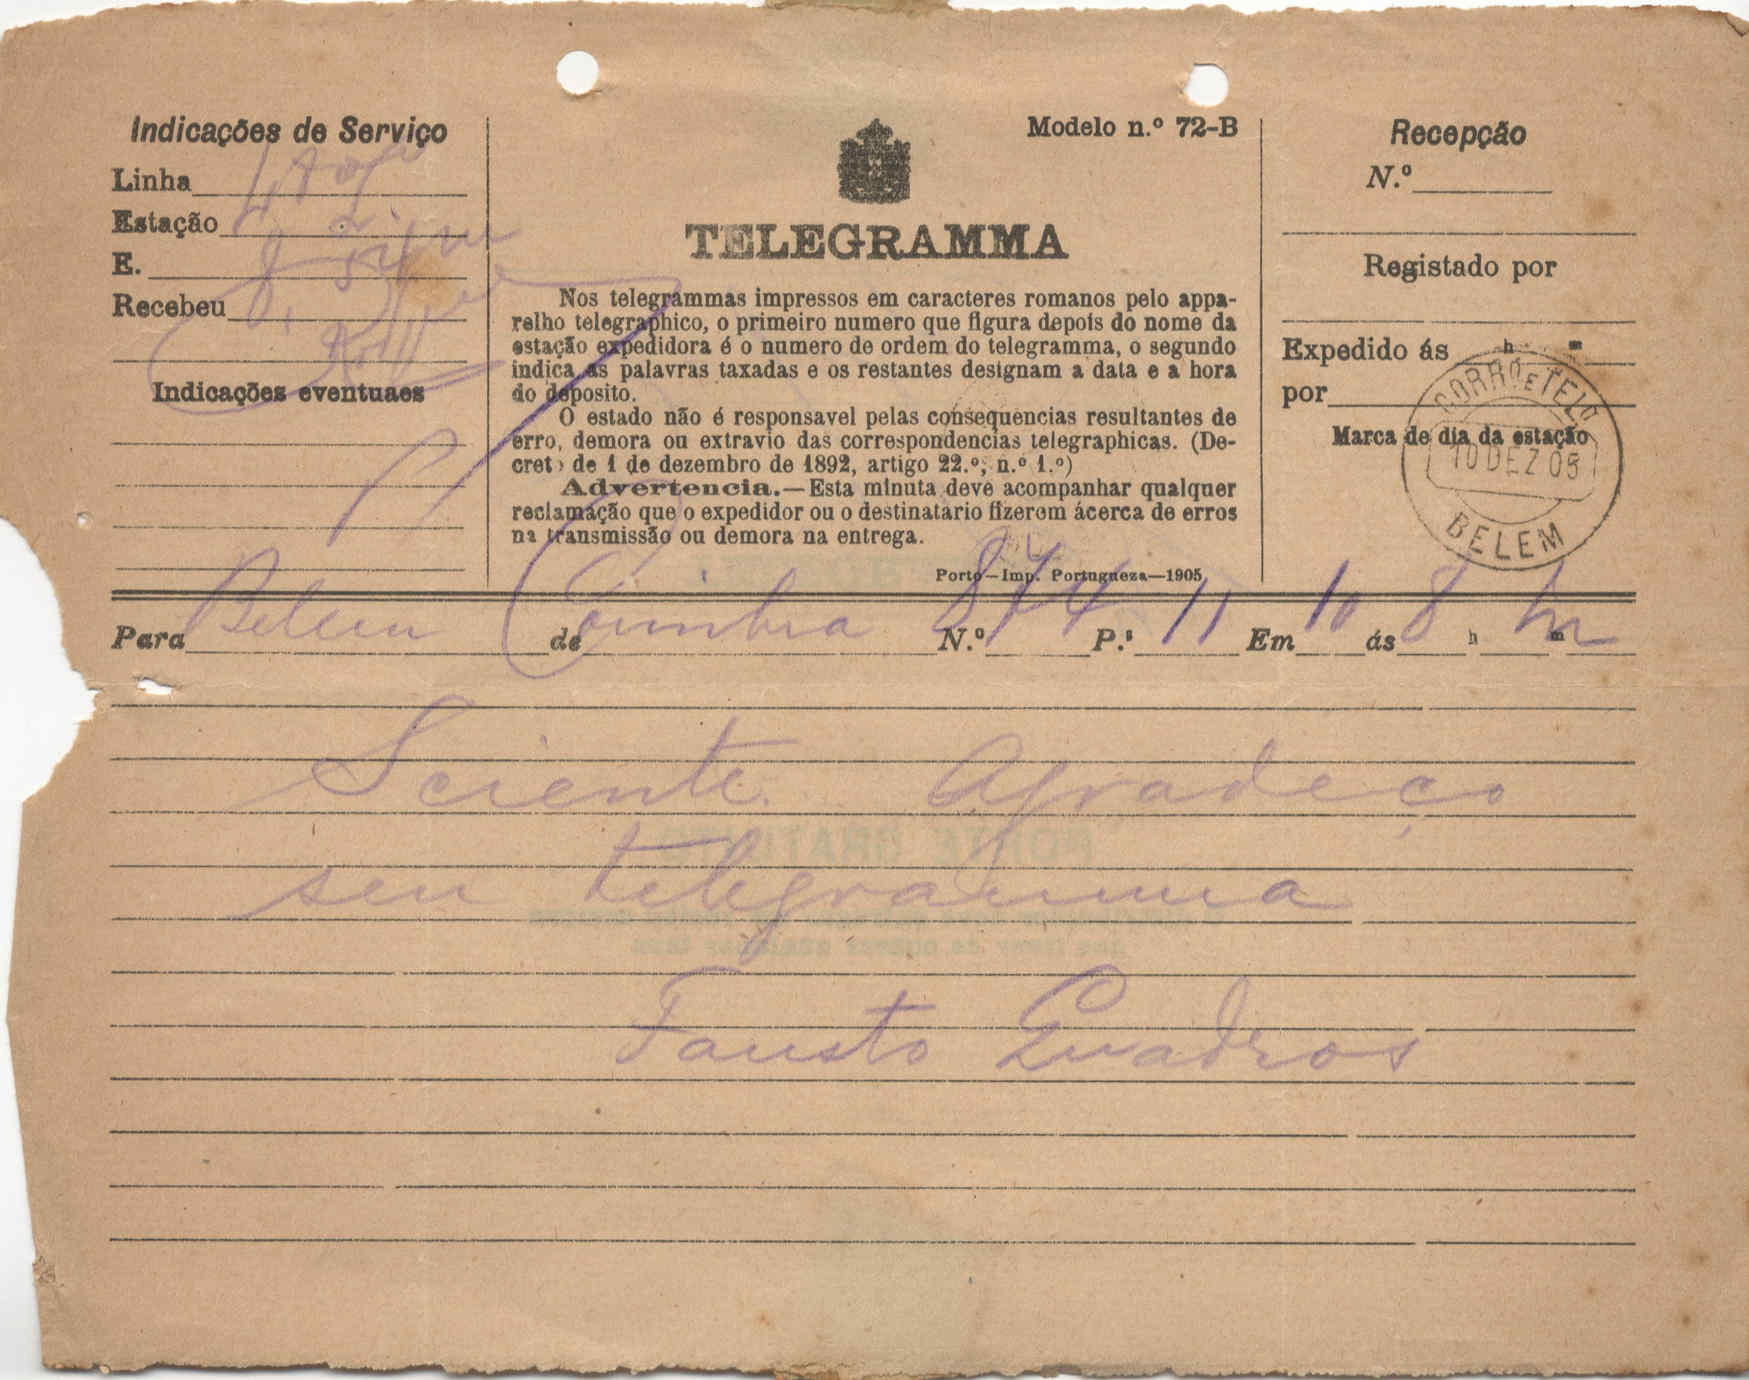 Indicações de Serviço
Linha
Estação
E.
Recebeu
Indicações eventuaes
Modelo n.º 72-B
TELEGRAMMA
Nos telegrammas impressos em caracteres romanos pelo appa-
relho telegraphico, o primeiro numero que figura depois do nome da
estação expedidora é o numero de ordem do telegramma, o segundo
indica as palavras taxadas e os restantes designam a data e a hora
do deposito.
O estado não é responsavel pelas consequencias resultantes de
erro, demora ou extravio das correspondencias telegraphicas. (De-
creto de 1 de dezembro de 1892, artigo 22.º, n.º 1.º)
Advertencia.—Esta minuta deve acompanhar qualquer
reclamação que o expedidor ou o destinatario fizerem ácerca de erros
na transmissão ou demora na entrega.
Porto—Imp. Portugueza—1905
Recepção
N.º
Registado por
Expedido ás h m
por
Marca de dia da estação
CORRO E TELO
10 DEZ 05
BELEM
Para Belem de Coimbra N.º 874 P.s 11 Em 10 ás 8 h m m
Sciente. Agradeço
seu telegramma
Fausto Quadros